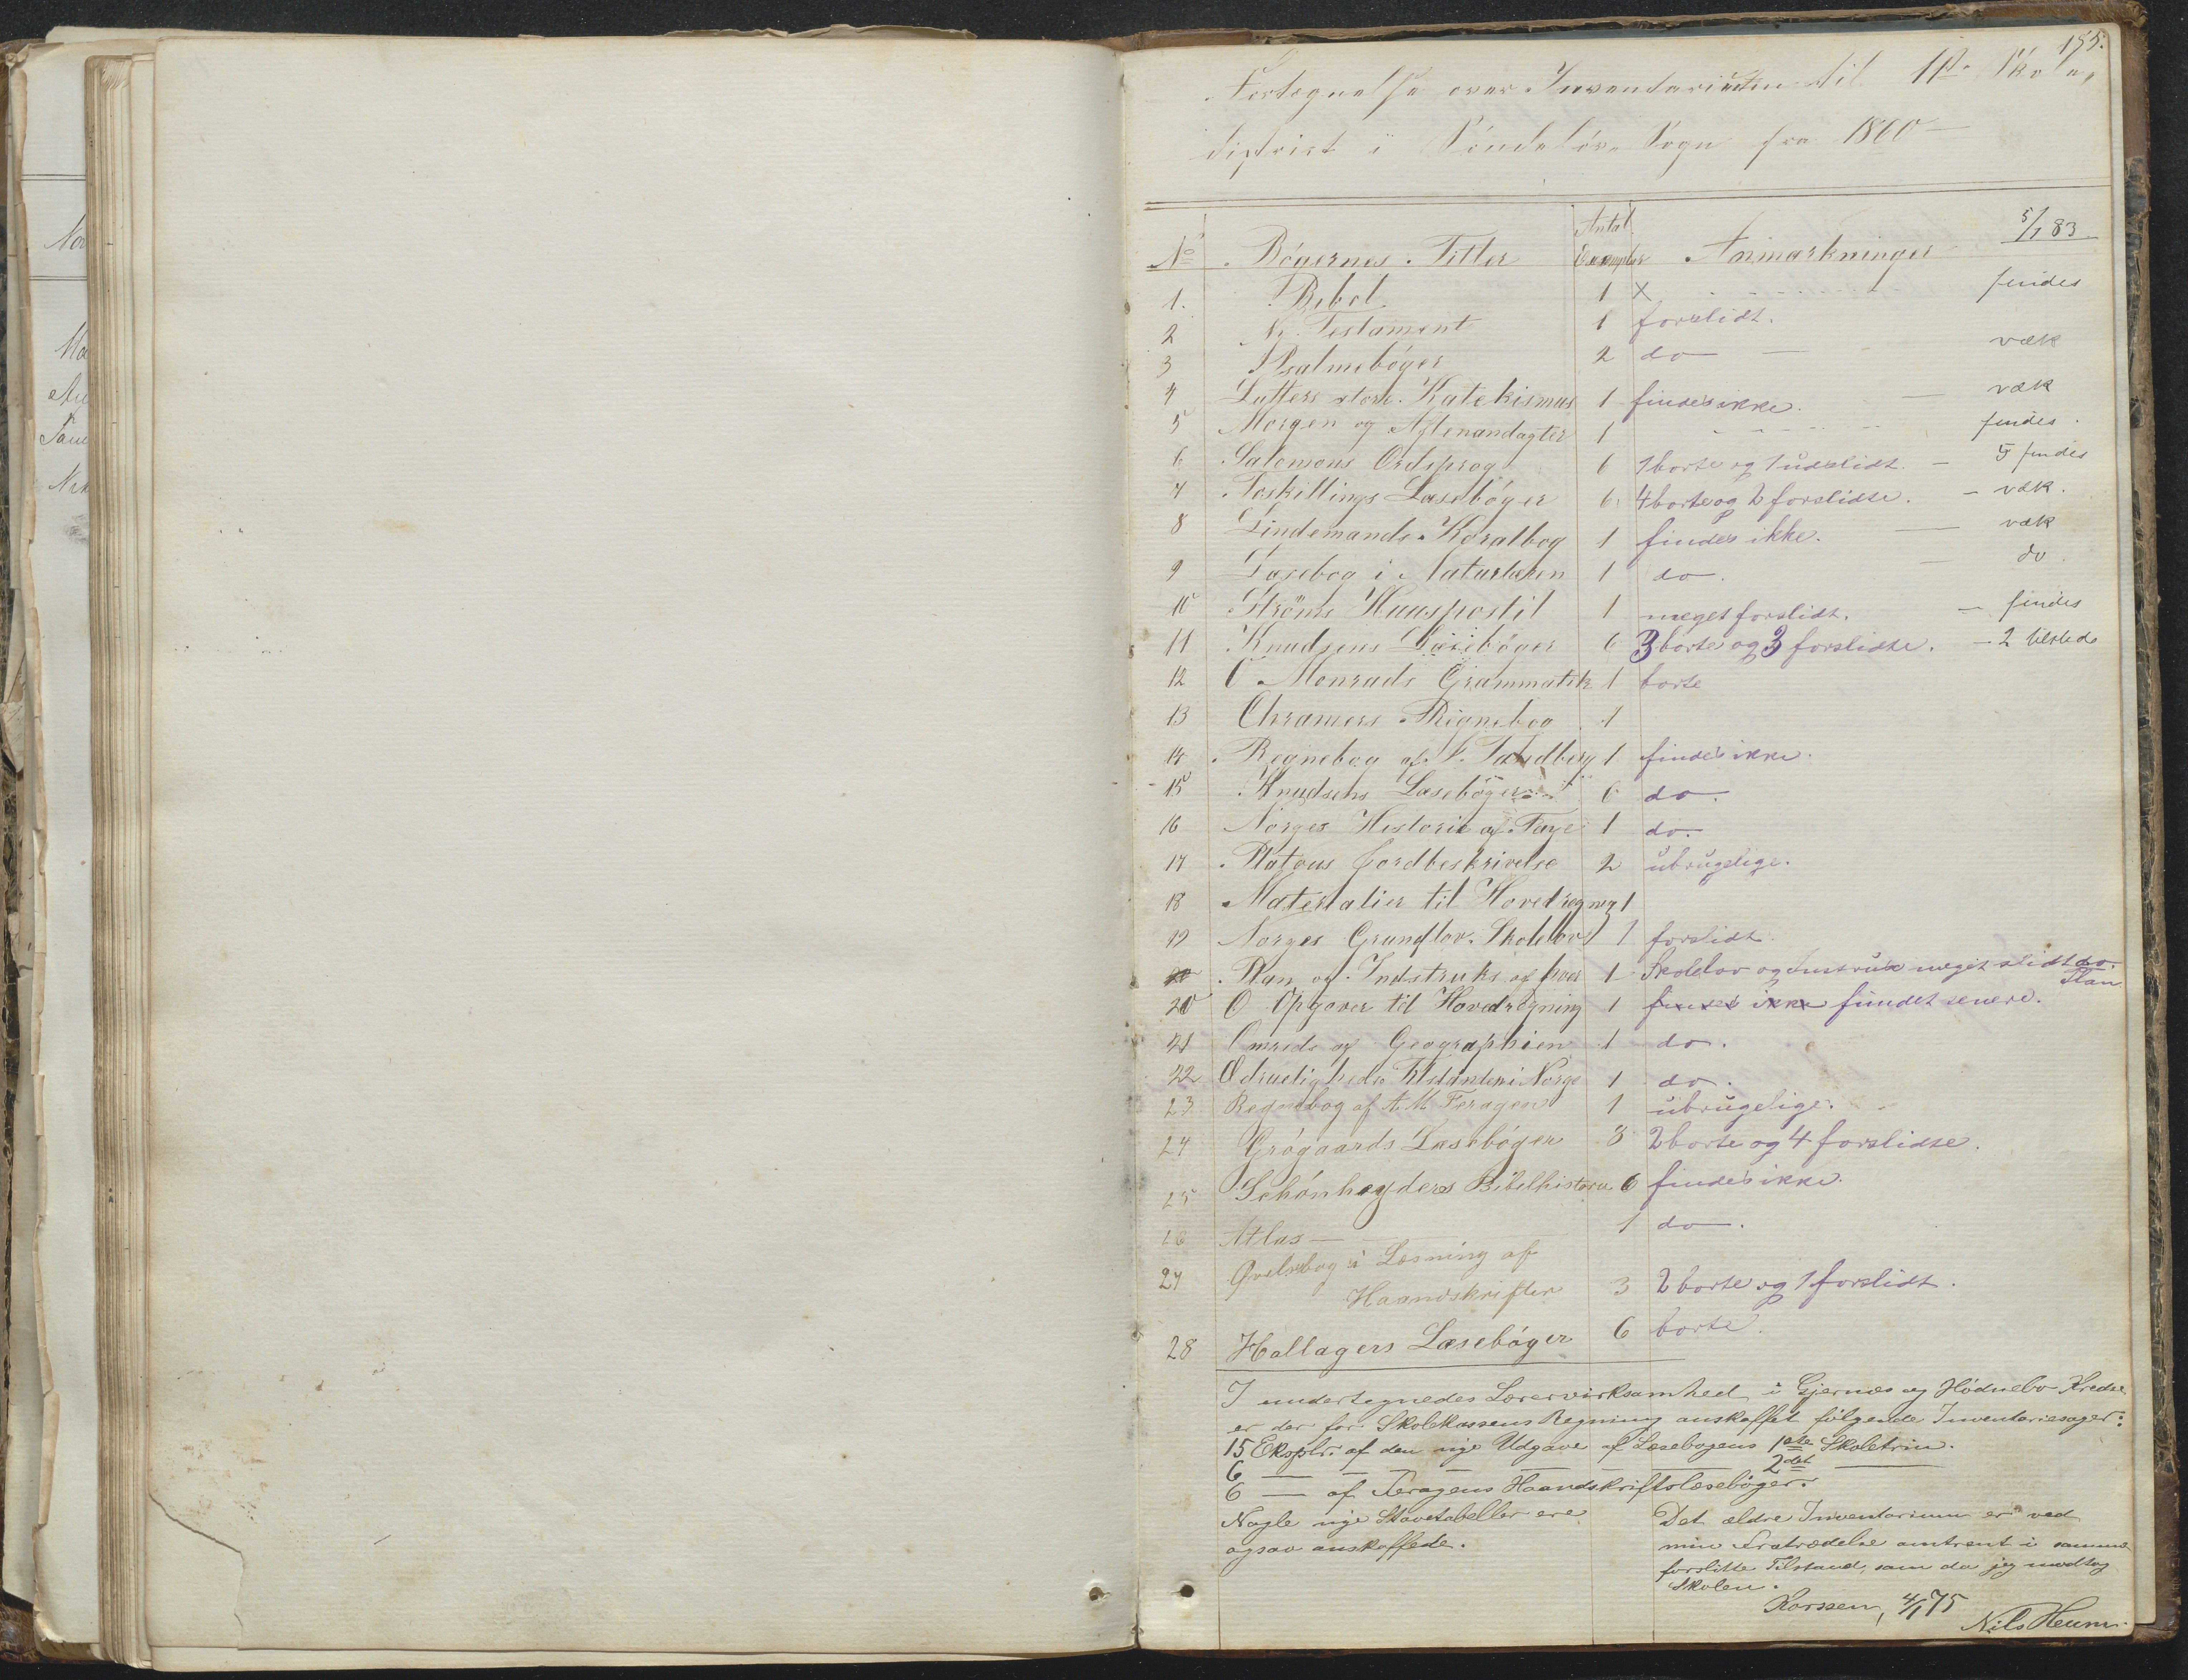 Nor
Ma
Nils
155.
Fortegnelse over Inventarium til 1ste Skole-
distrikt i Söndeløvs Sogn fra 1860 —
No. Bögernes Titler Antal Exempler Anmærkninger 5/1 83
1. Bibel. 1 X - - - - - findes
2 Ny Testament 1 forslidt.
3 Psalmebøger 2 do — væk
4 Lutters store Katekismus 1 findes ikke. — væk
5 Morgen og Aftenandagter 1 - - - - - findes.
6 Salomons Ordsprog 6 1 borte og 1 udslidt. — 5 findes
7 Toskillings Læsebøger 6 4 borte og 2 forslidte. — væk.
8 Lindemands Koralbog 1 findes ikke. — væk
9 Læsebog i Naturlæren 1 do. — do.
10 Strøms Huuspostil 1 meget forslidt. — findes
11 Knudsens Læsebøger 6 3 borte og 3 forslidte. — 2 tilstede
12 Monrads Grammatik 1 borte
13 Chramers Regnebog 1
14 Regnebog af Sandberg 1 findes ikke.
15 Knudsens Læsebøger 6 do.
16 Norges Historie af Faye 1 do.
17 Platous Jordbeskrivelse 2 ubrugelige.
18 Materialier til Hovedregneg 1
19 Norges Grundlov. Skolelov 1 forslidt.
20 Plan og Indstruks 1 Skolelov og Instrux meget slidt do. Plan
20 Opgaver til Hovedregning 1 findes ikke fundet senere.
21 Omrids af Geographien 1 do.
22 Ædrueligheds Tilstanden i Norge 1 do.
23 Regnebog af A. M. Feragen 1 ubrugelige.
24 Grøgaards Læsebøger 8 2 borte og 4 forslidte.
25 Schønheyders Bibelhistorie 6 findes ikke.
26 Atlas — 1 do.
27 Øvelsebog i Læsning af
Haandskrifter 3 2 borte og 1 forslidt.
28 Hallagers Læsebøger 6 borte.
I undertegnedes Lærervirksamhed i Gjernæs og Hødnebo Kredse
er der for Skolekassens Regning anskaffet følgende Inventariesager:
15 Eksplr. af den nye Udgave af Læsebogens 1ste Skoletrin.
6 — — — — — — 2det —
6 — af Feragens Haandskriftslæsebøger.
Nogle nye Stavetabeller ere
ogsaa anskaffede.
Det ældre Inventarium er ved
min Fratrædelse omtrent i samme
forslitte Tilstand, som da jeg modtog
Skolen.
Korssen, 4/1 75
Nils Heum.